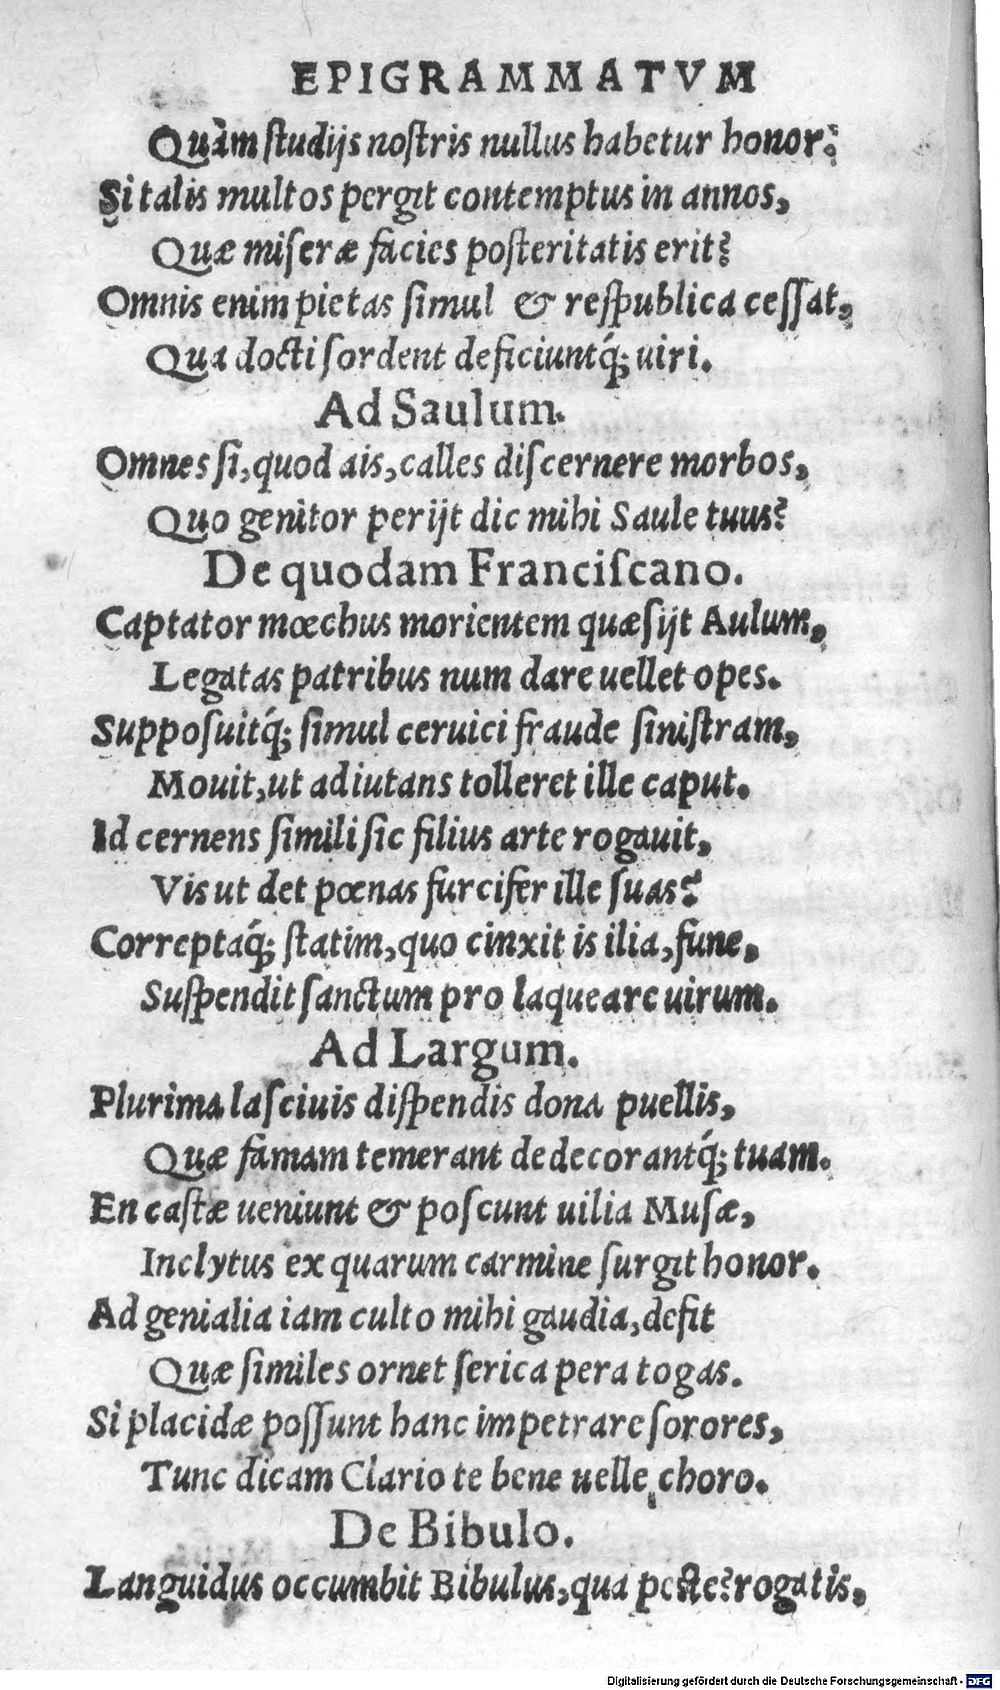 EPIGRAMMATVM
Quàm ſtudijs noſtris nullus habetur honor?
Si talis multos pergit contemptus in annos,
Quæ miſeræ facies poſteritatis erit?
Omnis enim pietas ſimul & reſpublica ceſſat,
Qua docti ſordent deficiuntq́; uiri.
Ad Saulum.
Omnes ſi, quod ais, calles diſcernere morbos,
Quo genitor perijt dic mihi Saule tuus?
De quodam Franciſcano.
Captator mœchus morientem quæſijt Aulum,
Legatas patribus num dare uellet opes.
Suppoſuitq́; ſimul ceruici fraude ſiniſtram,
Mouit, ut adiutans tolleret ille caput.
Id cernens ſimili ſic filius arte rogauit,
Vis ut det pœnas furcifer ille ſuas?
Correptaq́; ſtatim, quo cinxit is ilia, fune,
Suſpendit ſanctum pro laqueare uirum.
Ad Largum.
Plurima laſciuis diſpendis dona puellis,
Quæ famam temerant dedecorantq́; tuam.
En caſtæ ueniunt & poſcunt uilia Muſæ,
Inclytus ex quarum carmine ſurgit honor.
Ad genialia iam culto mihi gaudia, defit
Quæ ſimiles ornet ſerica pera togas.
Si placidæ poſſunt hanc impetrare ſorores,
Tunc dicam Clario te bene uelle choro.
De Bibulo.
Languidus occumbit Bibulus, qua peſte? rogatis,
Digitalisierung gefördert durch die Deutsche Forschungsgemeinschaft - DFG